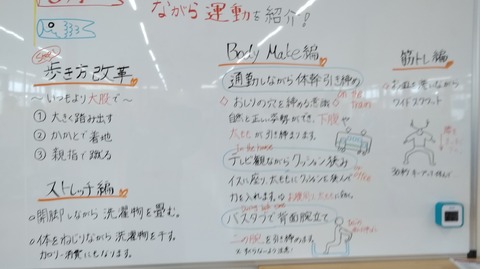 ながら運動を紹介！
歩き方改革
〜いつもより大股で〜
① 大きく踏み出す
② かかとで着地
③ 親指で蹴る
ストレッチ編
○開脚しながら洗濯物を畳む。
○体をねじりながら洗濯物を干す。
カロリー消費にもなります。
Body Make編
通勤しながら体幹引き締め
◇おしりの穴を締める意識
自然と正しい姿勢ができ、下腹や
太ももが引き締まります。
In the home
テレビ観ながらクッション挟み
イスに座り、太ももにクッションを挟んで
力を入れます。
バスタブで背面腕立て
二の腕を引き締めます
筋トレ編
ながら
ワイドスクワット
30秒キープ